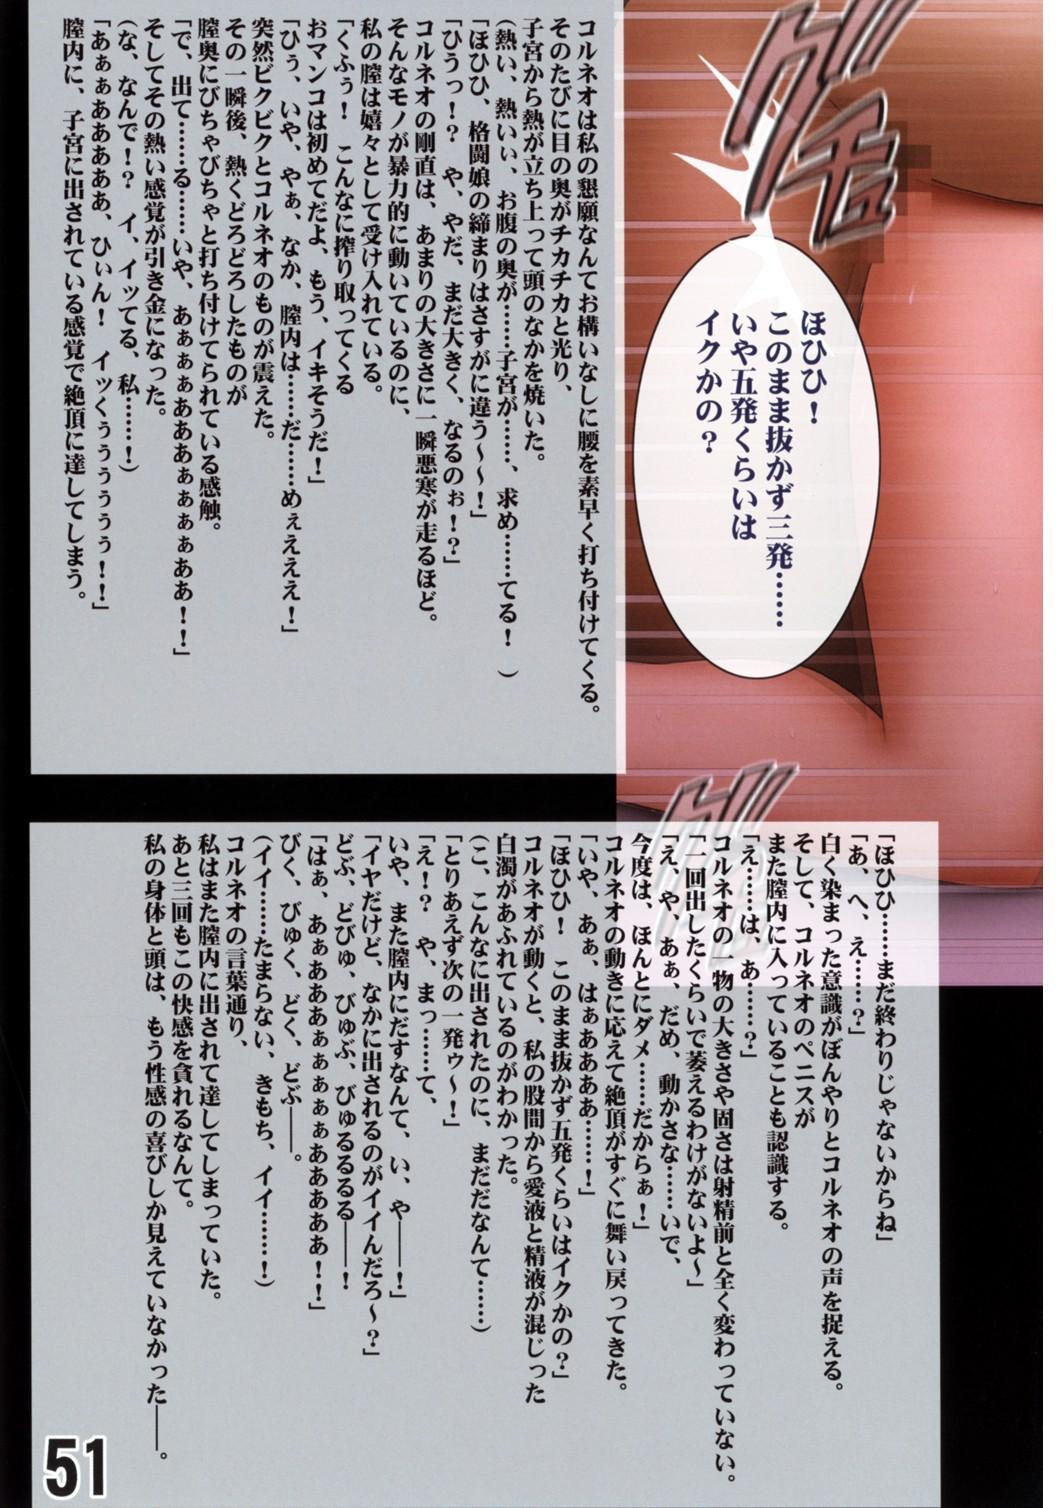 グチュ
ほひひ!
このまま抜かず三発……
いや五発くらいは
イクかの?
コルネオは私の懇願なんてお構いなしに腰を素早く打ち付けてくる。
そのたびに目の奥がチカチカと光り、
子宮から熱が立ち上って頭のなかを焼いた。
(熱い、熱いぃ、お腹の奥が……子宮が……、求め……てる! )
「ほひひ、格闘娘の締まりはさすがに違う~~!」
「ひうっ!? や、やだ、まだ大きく、なるのぉ!?」
コルネオの剛直は、あまりの大きさに一瞬悪寒が走るほど。
そんなモノが暴力的に動いているのに、
私の膣は嬉々として受け入れている。
「くふぅ! こんなに搾り取ってくる
おマンコは初めてだよ、もう、イキそうだ!」
「ひぅ、いや、やぁ、なか、膣内は……だ……めぇえええ!」
突然ビクビクとコルネオのものが震えた。
その一瞬後、熱くどろどろしたものが
膣奥にびちゃびちゃと打ち付けてられている感触。
「で、出て……る……いや、あぁぁぁあああぁぁぁぁああ!!」
そしてその熱い感覚が引き金になった。
(な、なんで!? イ、イッてる、私……!)
「あぁぁああああああ、ひぃん! イッくぅぅぅぅぅ!!」
膣内に、子宮に出されている感覚で絶頂に達してしまう。
グチュ
「ほひひ……まだ終わりじゃないからね」
「あ、へ、え……?」
白く染まった意識がぼんやりとコルネオの声を捉える。
そして、コルネオのペニスが
また膣内に入っていることも認識する。
「え……は、あ……?」
コルネオの一物の大きさや固さは射精前と全く変わっていない。
「一回出したくらいで萎えるわけがないよ~」
「え、や、あぁ、だめ、動かさな……いで、
今度は、ほんとにダメ……だからぁ!」
コルネオの動きに応えて絶頂がすぐに舞い戻ってきた。
「いや、あぁ、はぁああああ……!」
「ほひひ! このまま抜かず五発くらいはイクかの?」
コルネオが動くと、私の股間から愛液と精液が混じった
白濁があふれているのがわかった。
(こ、こんなに出されたのに、まだだなんて……)
「とりあえず次の一発ゥ~!」
「え!? や、まっ……て、
いや、また膣内にだすなんて、い、や――!」
「イヤだけど、なかに出されるのがイイんだろ~?」
どぶ、どびゅ、びゅぶ、びゅるるるる――!
「はぁ、あぁああああぁぁぁぁあああああ!!」
びく、びゅく、どく、どぶ――。
(イイ……たまらない、きもち、イイ……!)
コルネオの言葉通り、
私はまた膣内に出されて達してしまっていた。
あと三回もこの快感を貪れるなんて。
私の身体と頭は、もう性感の喜びしか見えていなかった――。
51